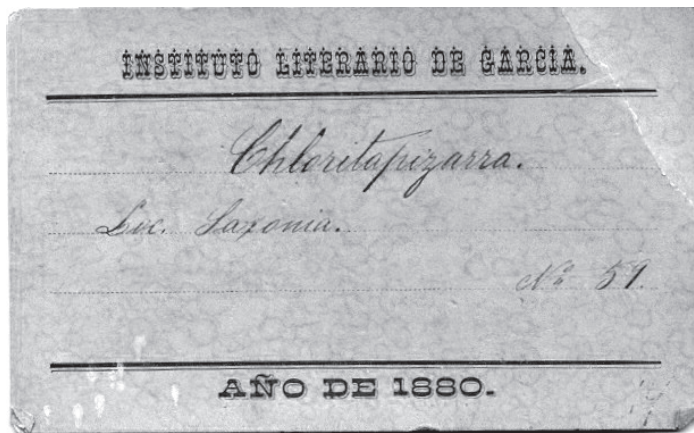 INSTITUTO LITERARIO DE GARCIA.
Chloritapizarra.
Loc. Saxonia.
No 59.
AÑO DE 1880.